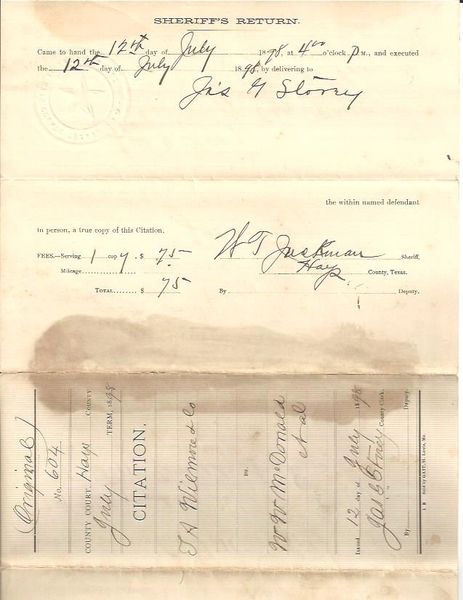 SHERIFF'S RETURN.
Came to hand the 12th day of July 1898, at 4 00 o'clock P M., and executed
the 12th day of July 1898, by delivering to
Jas G Storey
the within named defendant
in person, a true copy of this Citation.
FEES.—Serving 1 copy . $ 75
Mileage
TOTAL $ 75
W T Sheriff,
Hays County, Texas.
By Deputy.
(Original)
No. 604
COUNTY COURT, Hays COUNTY
July TERM, 1898
CITATION.
T A & Co
vs.
W W McDonald
et al
Issued 12 day of July 1898
Jas G Storey County Clerk.
By Deputy.